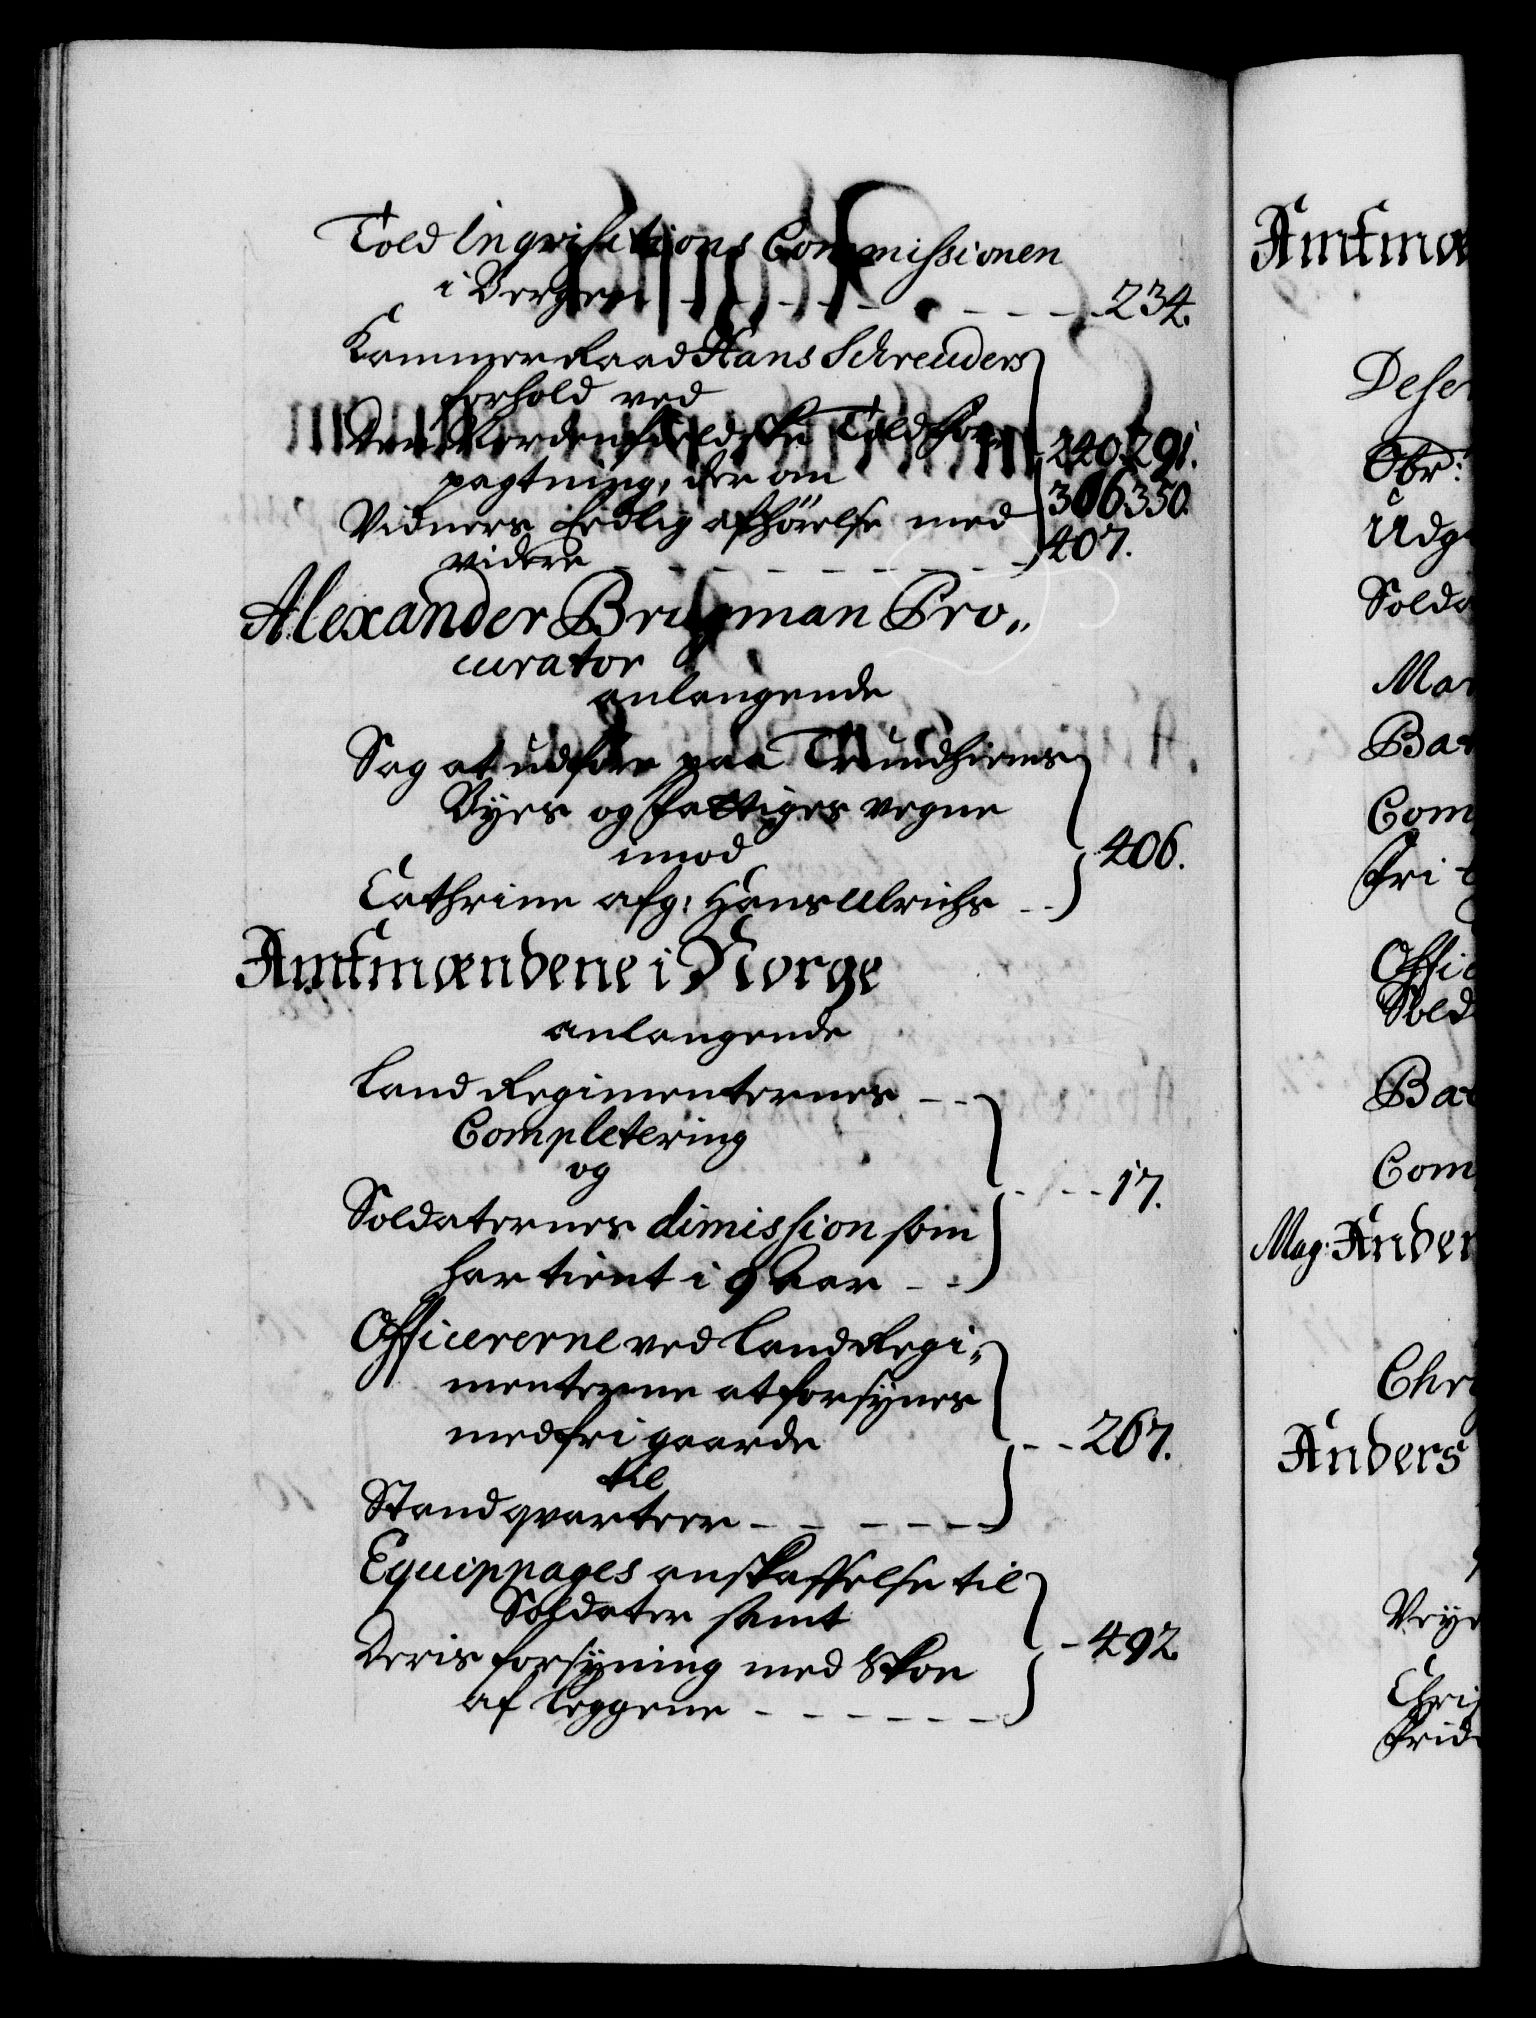 Told Inqvisitions Commissionen
i Bergen - - - - - - - - 234.
Kammer Raad Hans Schreuders
forhold ved
Den Nordenfieldske Told for-
pagtning, der om
Vidners Eedlig afhörelse med
videre - - - - - - - -
240. 291.
306. 350.
407.
Alexander Brugman Pro„
curator
anlangende
Sag at udföre paa Trundhiems
Byes og fattiges vegne
imod
Cathrine afg: Hans Ulrichs - -
406.
Amtmændene i Norge
anlangende
Land Regimenternes - -
Completering
og
Soldaternes dimission som
har tient i 9 Aar - -
- - - 17.
Officererne ved Land Regi„
menterne at forsynes
med fri gaarde
til
Stand qvarteer - - - - - -
- - 267.
Equippages anskaffelse til
Soldater samt
Deris forsyning med Skoe
af Leggene - - - - - -
- 492.
Amtmæ
Dese
Obr:
Udg
Solda
Mar
Bar
Com
Fri
Offic
Sold
Ba
Com
Mag: Ander
Chr
Anders
Veye
Chri
Frid